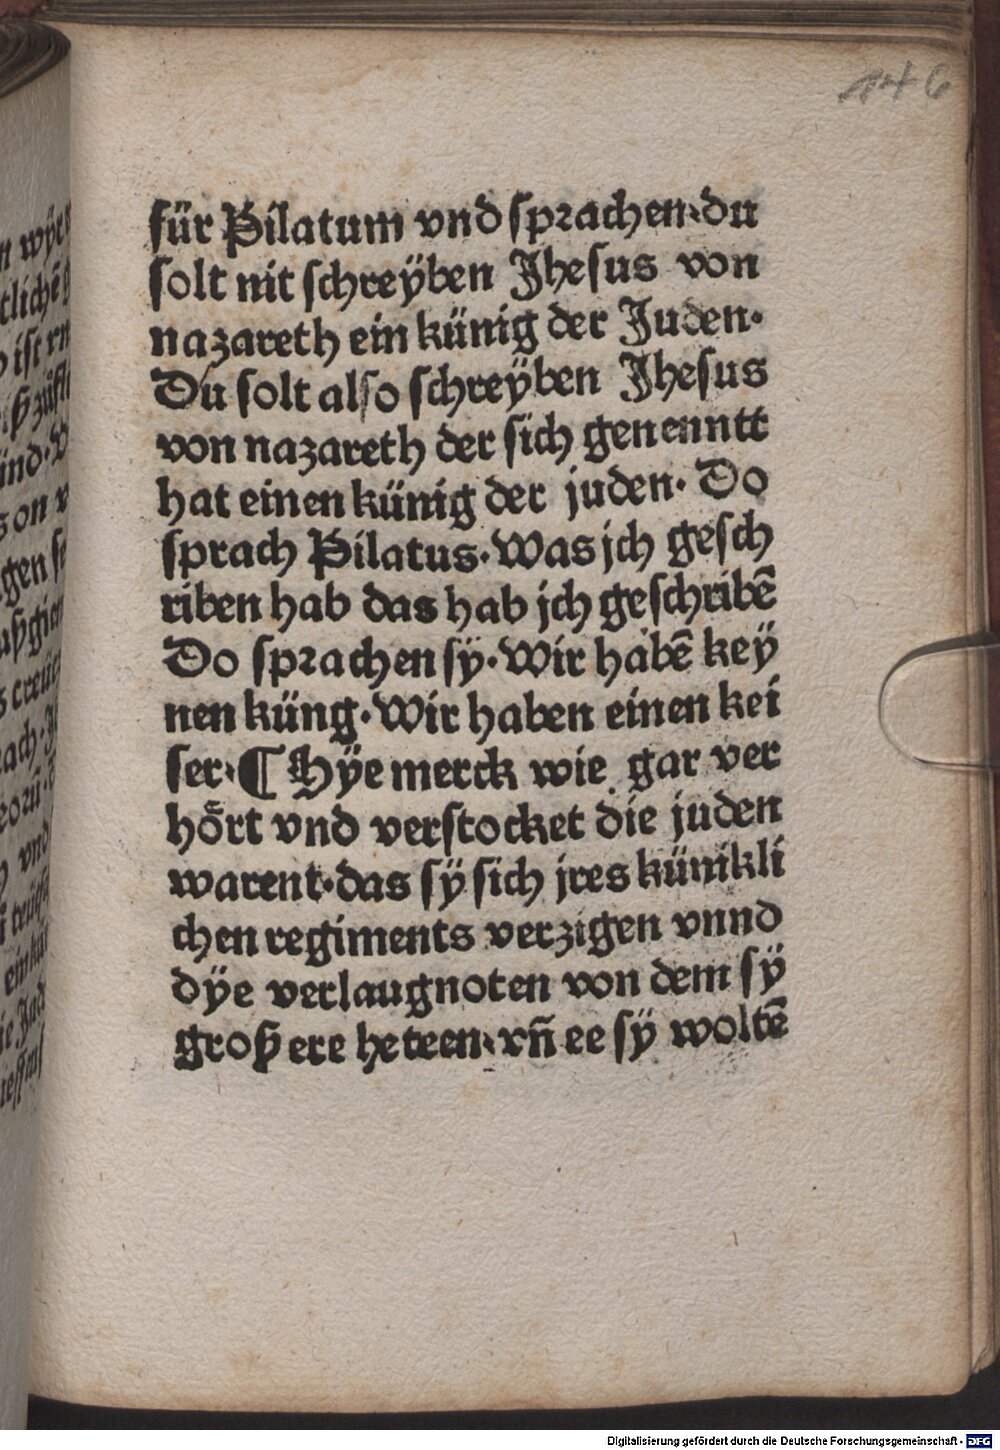 146
für Pilatum vnd sprachen·du
solt nit schreÿben Jhesus von
nazareth ein künig der Juden·
Du solt also schreÿben Jhesus
von nazareth der sich genenntt
hat einen künig der juden· Do
sprach Pilatus·Was jch gesch
riben hab das hab jch geschribē
Do sprachen sÿ·Wir habē keÿ
nen küng·Wir haben einen kei
ser·¶ Hÿe merck wie gar ver
hoͤrt vnd verstocket die juden
warent·das sÿ sich jres künikli
chen regiments verzigen vnnd
dÿe verlaugnoten von dem sÿ
groß ere heteen·vn̄ ee sÿ woltē
Digitalisierung gefördert durch die Deutsche Forschungsgemeinschaft - DFG